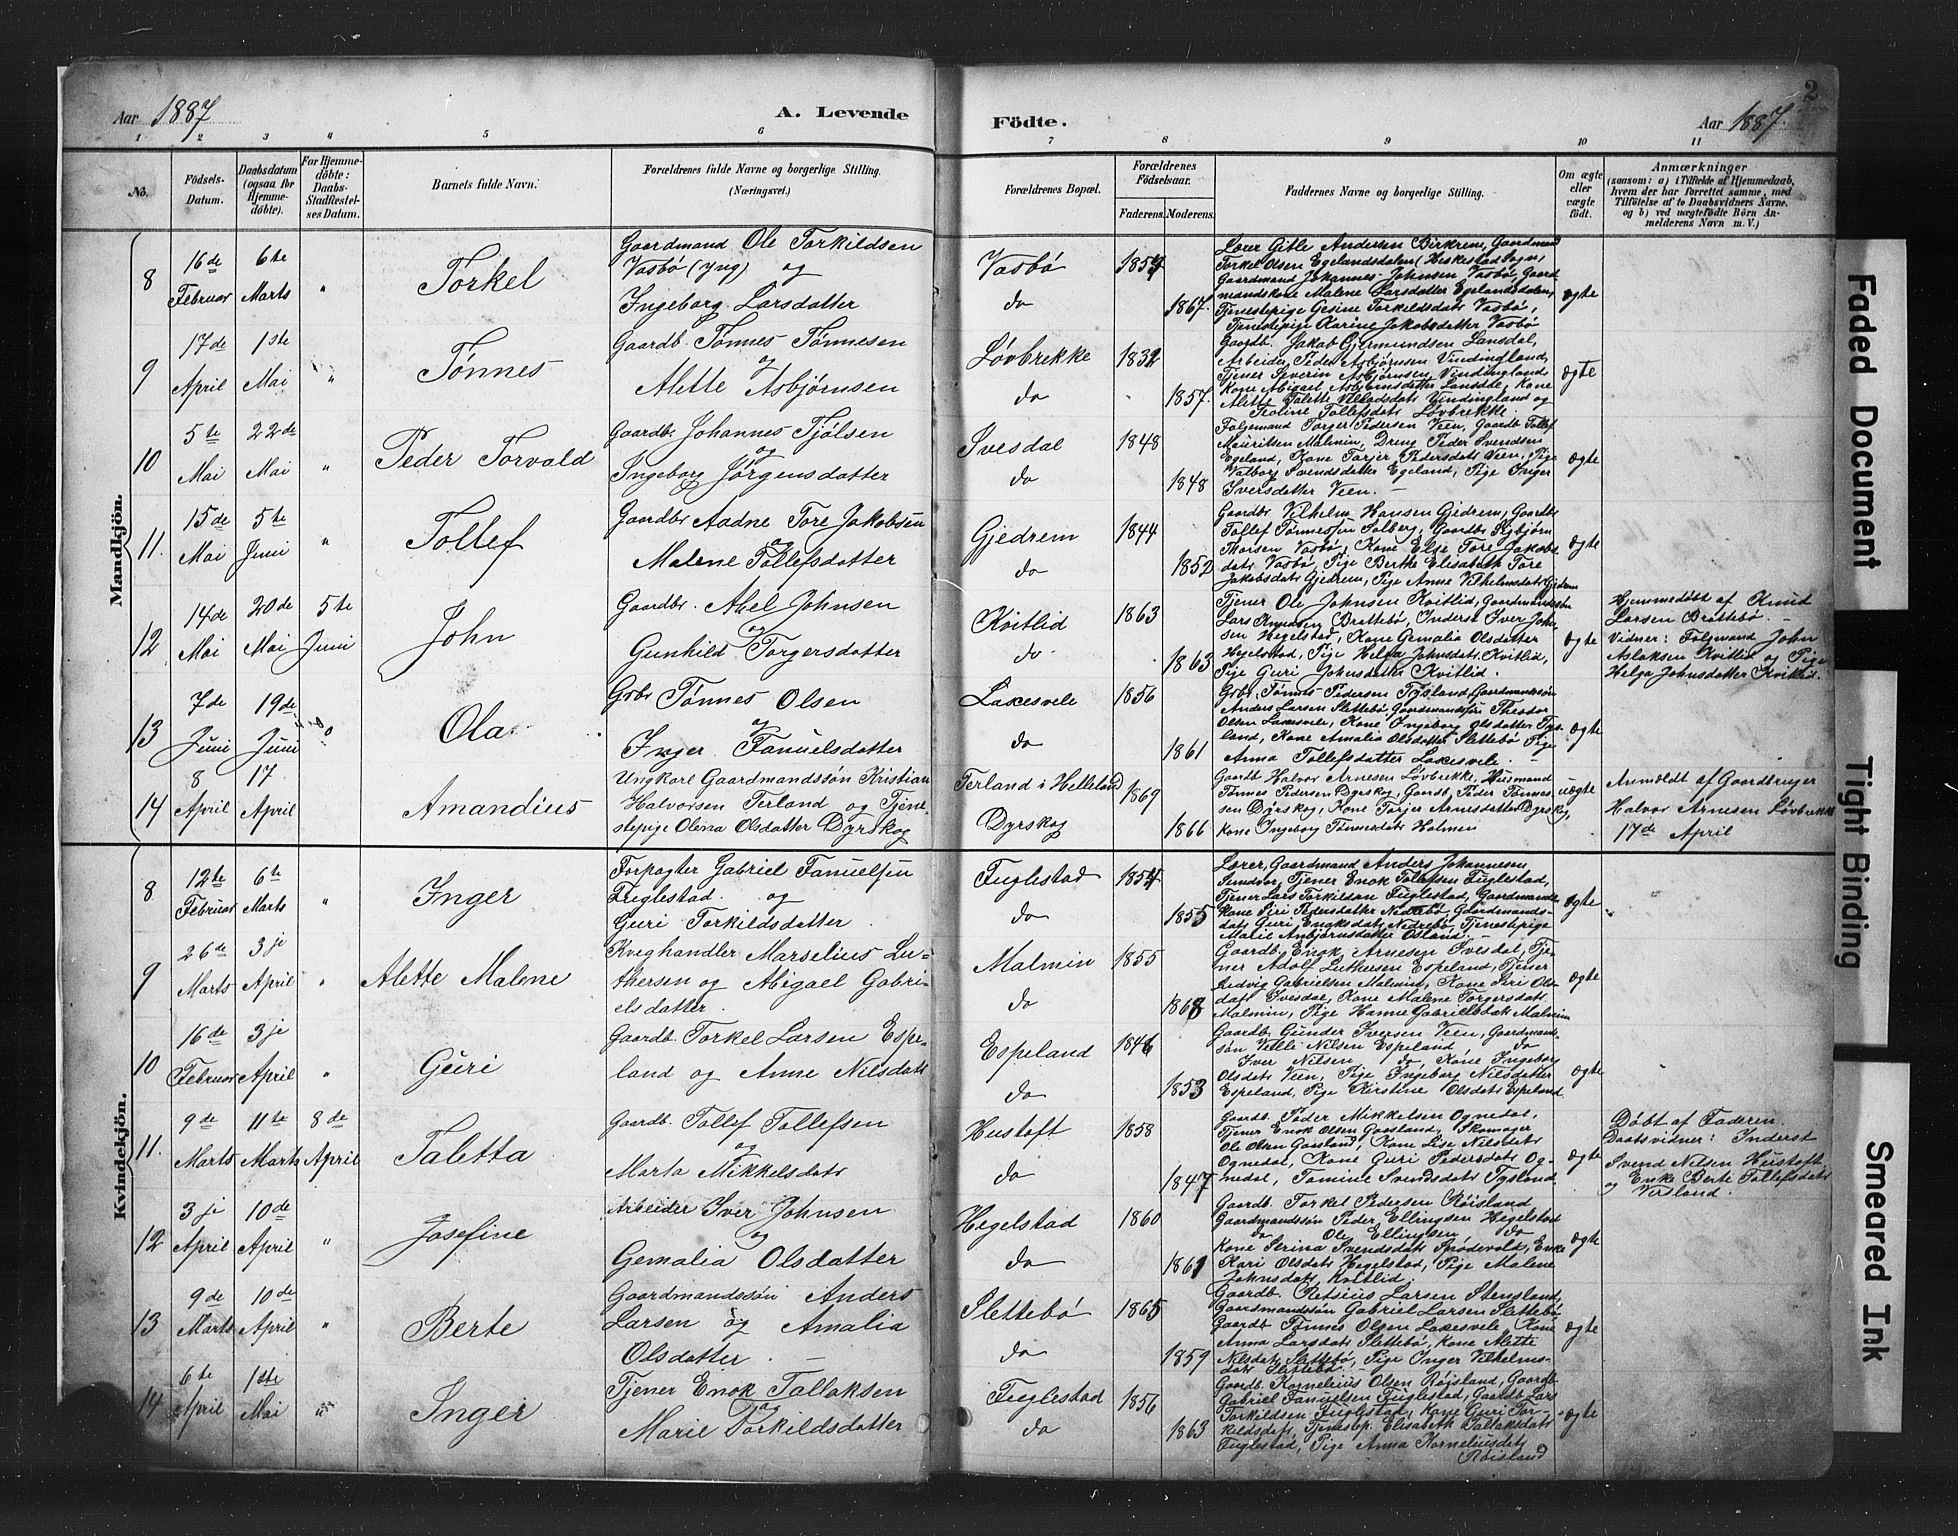 Aar 1887
A. Levende
Födte.
Aar 1887.
2
1 2 3 " 5 6 7 8 9 10 11
No.
Födsels-
Datum.
Daabsdatum
(ogsaa for
Hjemme-
döbte).
For Hjemme-
döbte:
Daabs-
Stadfæstel-
ses Datum.
Barnets fulde Navn.
Forældrenes fulde Navne og borgerlige Stilling.
(Næringsvei.)
Forældrenes Bopæl.
Forældrenes
Födselsaar.
Faderens. Moderens.
Faddernes Navne og borgerlige Stilling.
Om ægte
eller
uægte
födt.
Anmærkninger
(saasom: a) i Tilfælde af Hjemmedaab,
hvem der har forrettet samme, med
Tilföielse af to Daabsvidners Navne.
og b) ved uægtefödte Börn An-
melderens Navn m. V.)
Mandkjön.
8
16de
Februar
6te
Marts
"
Torkel
Gaardmand Ole Torkildsen
Vasbø (yng) og
Ingeborg Larsdatter
Vasbø
do
1857
1867.
Lærer Gitle Andersen Birkrem, Gaardmand
Torkel Olsen Egelandsdalen (Heskestad Sogn,
Gaardmand Johannes Johnsen Vasbø, Gaard
mandskone Malene Larsdatter Egelandsdalen,
Tjenestepige Gesine Torkildsdatr Vasbø,
Tjenestepige Karine Jakobsdatter Vasbø
ægte
9
17de
April
1ste
Mai
"
Tønnes
Gaardb. Tønnes Tønnesen
og
Alette Asbjørnsen
Løvbrekke
do
1832
1857.
Gaardb. Jakob Gjermundsen Lansdal,
Arbeider Peder Asbjørnsen Vindingland,
Tjener Severin Asbjørnsen Vindingland
Kone Abigael Asbjørnsdatter Lansdal, Kone
Alette Talette Villadsdatr Vindingland og
Teoline Tollefsdatr Løvbrekke.
ægte
10
5te
Mai
22de
Mai
"
Peder Torvald
Gaardbr Johannes Tjølsen
og
Ingeborg Jørgensdatter
Ivesdal
do
1848
1848
Følgemand Torger Pedersen Veen, Gaardb Tollef
Mauritsen Malmin, Dreng Peder Svendsen
Egeland, Kone Torjer Pedersdatr Veen, Pige
Valborg Svendsdatter Egeland, Pige Inger
Iversdatter Veen. –
ægte
11.
15de
Mai
5te
Juni
"
Tollef
Gaardbr Aadne Tore Jakobsen
og
Malene Tollefsdatter
Gjedrem
do
1844
1852
Gaardbr Vilhelm Hansen Gjedrem, Gaardbr
Tollef Tønnessen Solberg, Gaardbr Asbjørn
Thorsen Vasbø, Kone Else Tore Jakobs
datr Vasbø, Pige Berthe Elisabeth Tore
Jakobsdatr Gjedrem, Pige Anne Vilhelmsdatr Gjedrem
ægte
12
14de
Mai
20de
Mai
5te
Juni
John
Gaardbr. Abel Johnsen
og
Gunhild Torgersdatter
Kvitlid
do
1863
1863
Tjener Ole Johnsen Kvitlid, Gaardmandssøn
Lars Knudsen Brattebø, Inderst Iver John
sen Hegelstad, Kone Gemalia Olsdatter
Hegelstad, Pige Helga Johnsdatr. Kvitlid,
Pige Guri Johnsdatter Kvitlid.
ægte
Hjemmedøbt af Knud
Larsen Brattebø. –
Vidner: Følgmand John
Aslaksen Kvitlid og Pige
Helga Johnsdatter Kvitlid.
13
7de
Juni
19de
Juni
Ola
Grbr Tønnes Olsen
og
Inger Fanuelsdatter
Lakesvele
do
1856
1861
Grbr. Tønnes Pedersen Tysland, Gaardmandssøn
Anders Larsen Slettebø, Gaardmandssøn Theodor
Olsen Lakesvele, Kone Ingeborg Olsdatter Tys-
land, Kone Amalia Olsdatter Slettebø Pige
Anna Tollefsdatter Lakesvele. –
ægte
14
8
April
17
April
Amandius
Ungkarl Gaardmandssøn Kristian
Halvorsen Terland og Tjene
stepige Olena Olsdatter Dyrskog
Terland i Helleland
Dyrskog
1869
1866
Gaardb Halvor Arnesen Løvbrekke, Husmand
Tønnes Pedersen Dyrskog, Gaardb. Peder Tønnes-
sen Dyrskog, Kone Torjer Arnesdatter Dyrskog,
Kone Ingeborg Tønnesdatr Holmen
uægte
Anmeldt af Gaardbruger
Halvor Arnesen Løvbrekke
17de April
Kvindekjön.
8
12te
Februar
6te
Marts
"
Inger
Forpagter Gabriel Fanuelsen
Fuglestad. og
Guri Torkildsdatter.
Fuglestad
do
1854
1855
Lærer, Gaardmand Anders Johannesen
Sundvor, Tjener Enok Tollaksen Fuglestad,
Tjener Lars Torkildsen Fuglestad, Gaardmands
Kone Siri Pedersdatter Nedrebø, Gaardmands-
datr Guri Enoksdatr Nedrebø, Tjenestepige
Malie Anbjørnsdatter Osland. –
ægte
9
26de
Marts
3je
April
"
Alette Malene
Kveghandler Marselius Lu-
thersen og Abigael Gabri-
elsdatter.
Malmin
do
1855
1868
Gaardb. Enok Arnesen Ivesdal, Tje
ner Adolf Luthersen Espeland, Tjener
Ludvig Gabrielsen Malmin, Kone Siri Ols-
datr Ivesdal, Kone Malene Torgersdatr
Malmin, Pige Hanne Gabrielsdatr Malmin
ægte
10
16de
Februar
3je
April
"
Guri
Gaardb. Torkel Larsen Espe-
land og Anne Nilsdatr
Espeland
do
1846
1853
Gaardb. Gunder Iversen Veen, Gaardmand-
søn Velle Nilsen Espeland do
Iver Nilsen do, Kone Ingeborg
Olsdatr Veen, Pige Ingeborg Nilsdatter
Espeland, Pige Kirstine Olsdatr Espeland.
ægte
11.
9de
Marts
11te
Marts
8de
April
Taletta
Gaardb. Tollef Tollefsen
og
Marta Mikkelsdatr
Hustoft
do
1858
1847
Gaardb. Peder Mikkelsen Ognedal,
Tjener Enok Olsen Gaasland, Skomager
Ole Olsen Gaasland, Kone Lise Nilsdatr
Ognedal, Kone Guri Pedersdatr Og-
nedal, Tomine Svendsdatr Tysland.
ægte
Døbt af Faderen.
Daabsvidner: Inderst
Svend Nilsen Hustoft,
og Enke Berte Tollefsdatr
Virsland.
12
3je
April
10de
April
"
Josefine
Arbeider Iver Johnsen
og
Gemalia Olsdatter
Hegelstad
do
1860
1861
Gaardb. Torkel Pedersen Røisland
Gaardmandssøn Peder Ellingsen Hegelstad
do Ole Ellingsen do
Kone Serina Svendsdatr Sprødevold, Enke
Kari Olsdatr Hegelstad, Pige Malene
Johnsdatr. Kvitlid.
ægte
13
9de
Marts
10de
April
"
Berte
Gaardmandssøn Anders
Larsen og Amalia
Olsdatter. –
Slettebø
do
1865
1859
Gaardb. Retsius Larsen Stensland,
Gaardmandssøn Gabriel Larsen Slettebø
Gaardb Tønnes Olsen Lakesvele, Kone
Anna Larsdatr Slettebø, Kone Alette
Nilsdatr Slettebø, Pige Inger Vilhelms-
datr Slettebø. –
ægte
14
6te
April
1ste
Mai
"
Inger
Tjener Enok Tallaksen
og
Marie Torkildsdatter
Fuglestad
do
1856
1863
Gaardb. Kornelius Olsen Røisland, Gaardb
Gabriel Fanuelsen Fuglestad, Gaardb Lars
Torkildsen Fuglestad, Kone Guri Tor-
kildsdatr, Tjenestep. Elisabeth Tallaksdatr
Fuglestad, Pige Anna Korneliusdatr
Røisland
ægte
Faded Document
Tight Binding
Smeared Ink